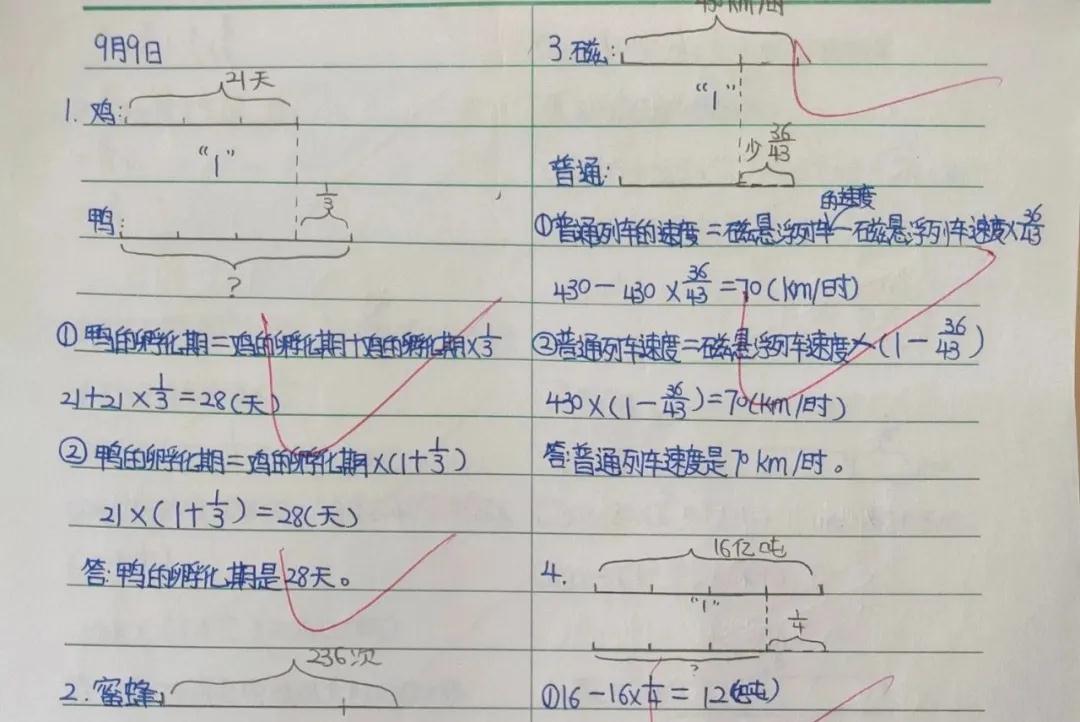 9月9日
21天
1. 鸡:
“1”
1/3
鸭:
?
①鸭的孵化期=鸡的孵化期+鸡的孵化期×1/3
21+21×1/3=28(天)
②鸭的孵化期=鸡的孵化期×(1+1/3)
21×(1+1/3)=28(天)
答:鸭的孵化期是28天。
236次
2.蜜蜂:
430km/时
3.磁:
“1”
少36/43
普通:
的速度
①普通列车的速度=磁悬浮列车-磁悬浮列车速度×36/43
430-430×36/43=70(km/时)
②普通列车速度=磁悬浮列车速度×(1-36/43)
430×(1-36/43)=70(km/时)
答:普通列车速度是70km/时。
16亿吨
4.
“1”
1/4
?
①16-16×1/4=12(亿吨)